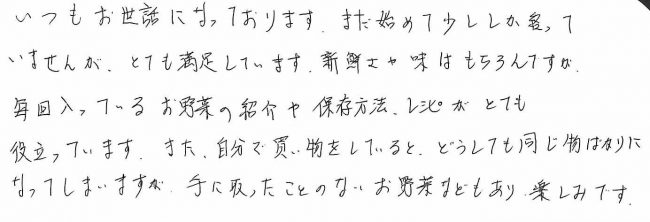 いつもお世話になっております。まだ始めて少ししか経って
いませんが、とても満足しています。新鮮さや味はもちろんですが、
毎回入っているお野菜の紹介や保存方法、レシピがとても
役立っています。また、自分で買い物をしていると、どうしても同じ物ばかりに
なってしまいますが、手に取ったことのないお野菜などもあり、楽しみです。